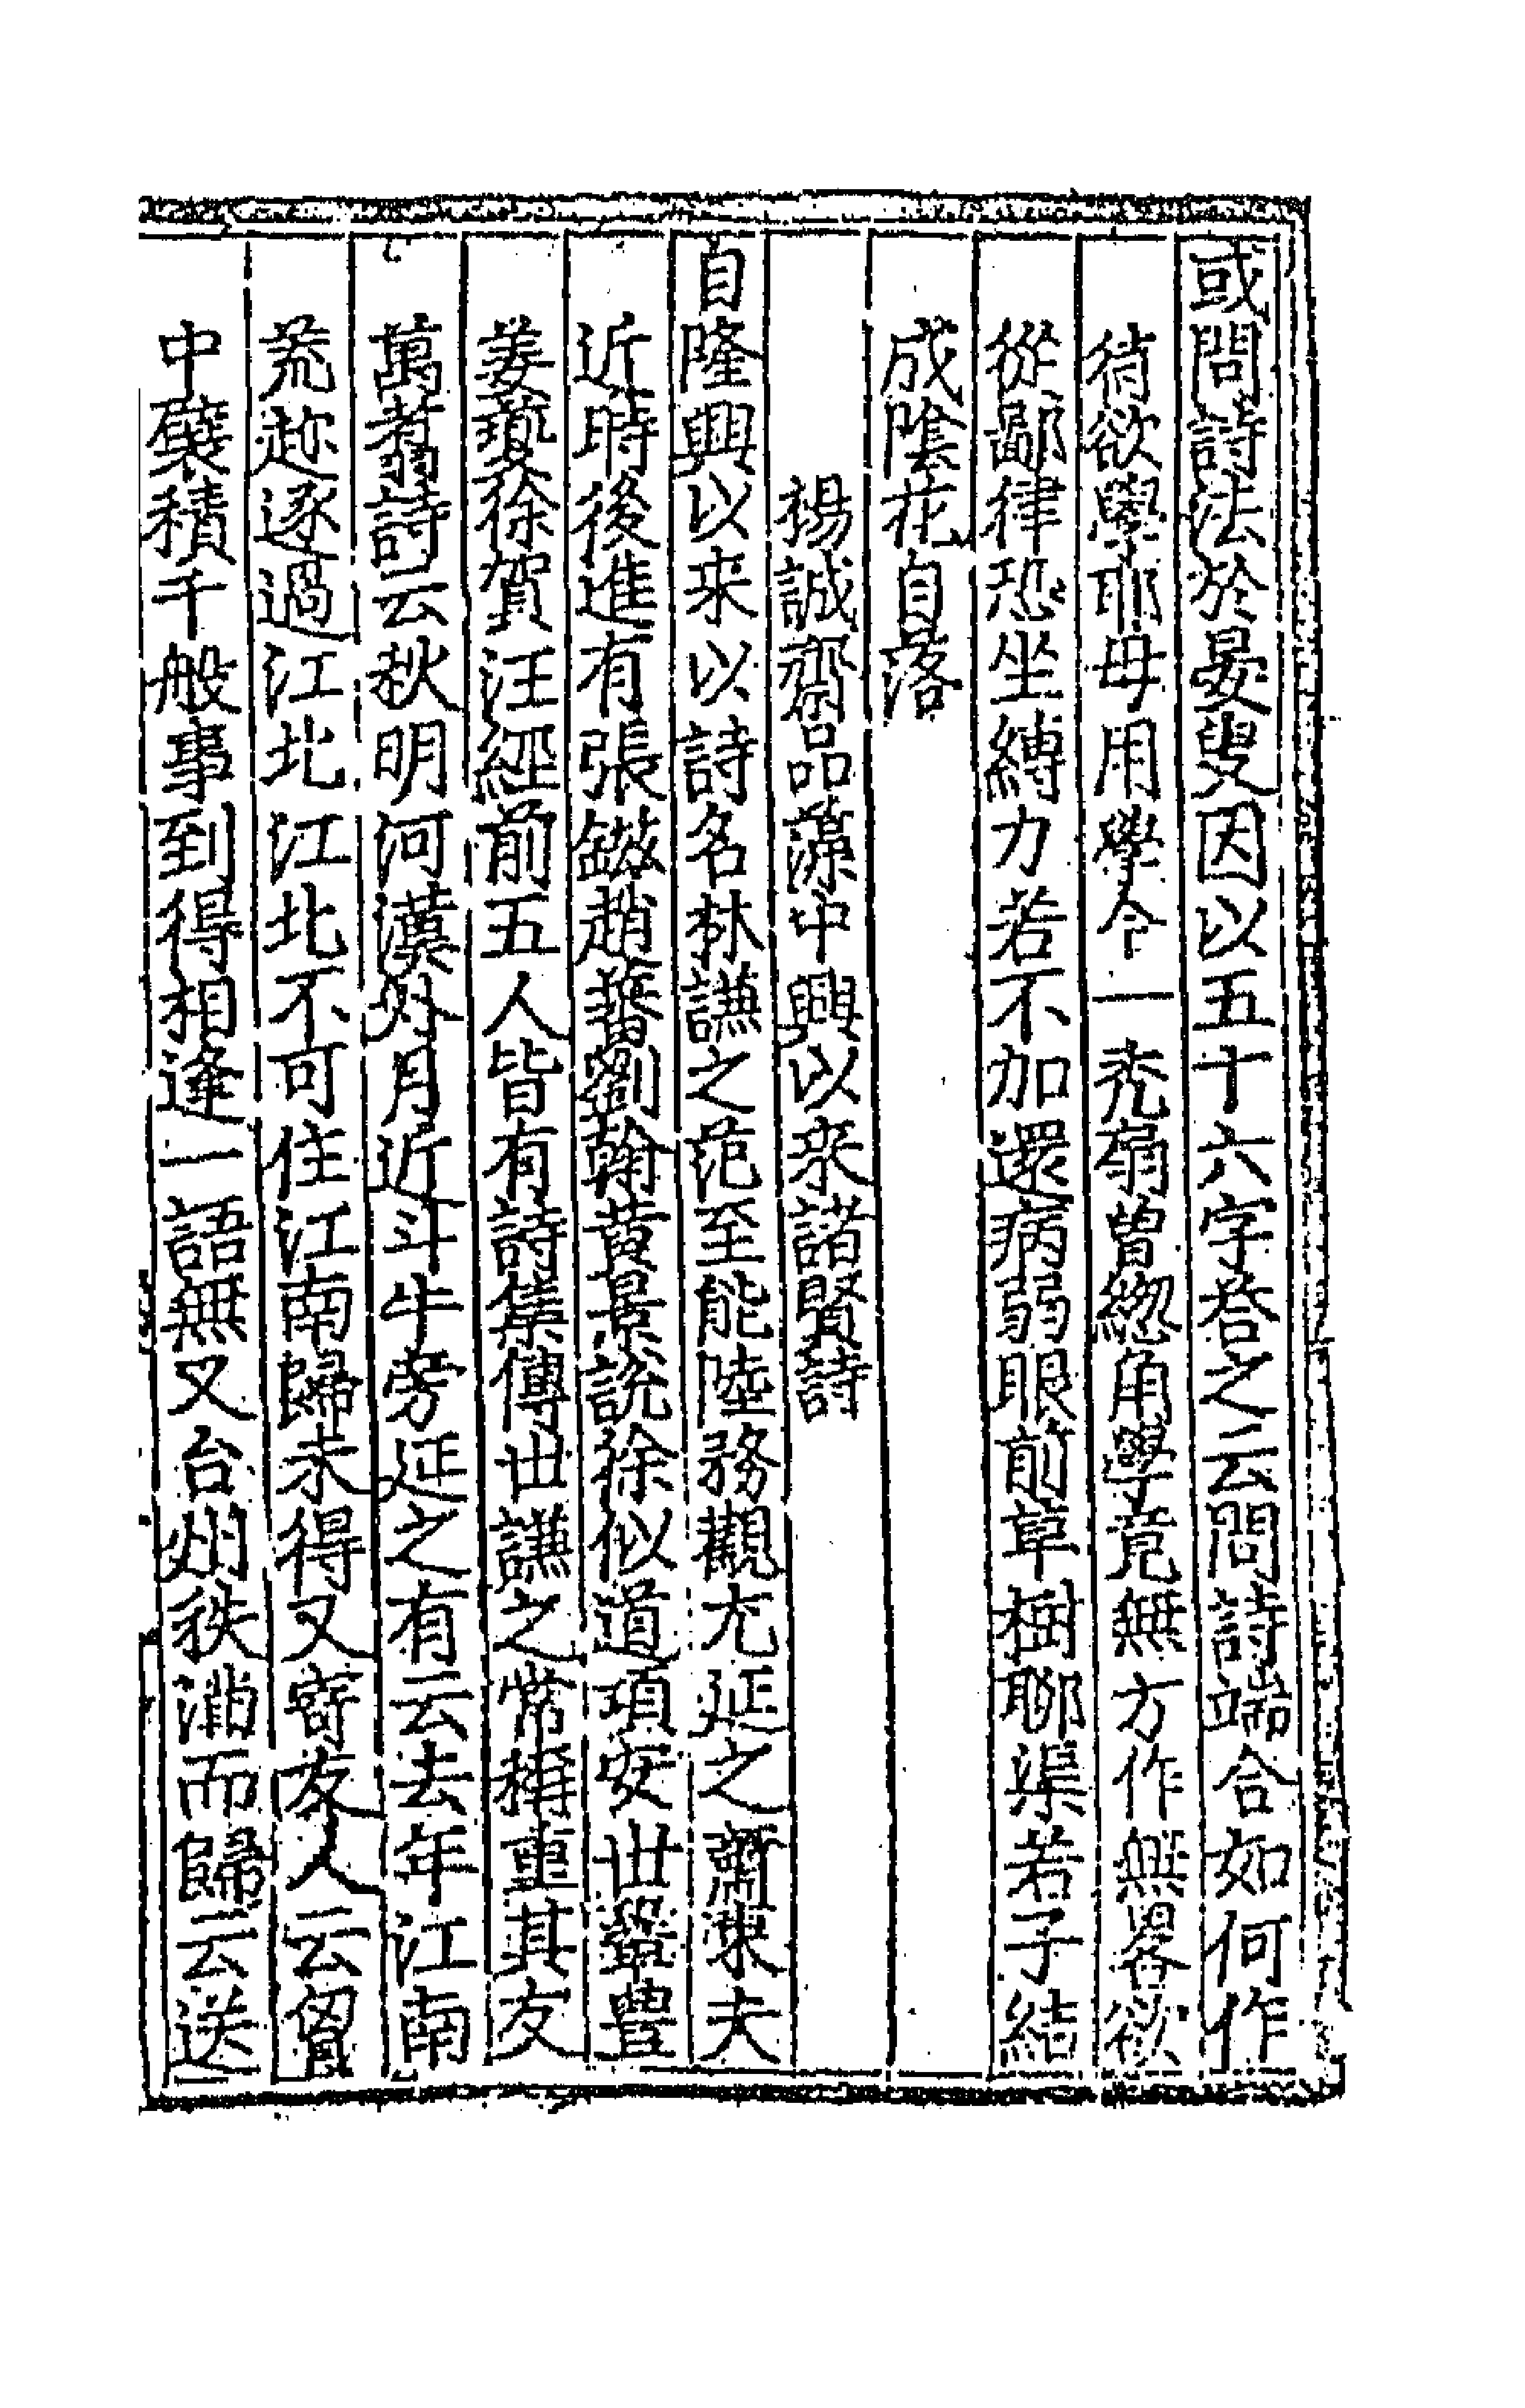 或問詩法於晏叟因以五十六字荅之云問詩端合如何作
待欲學耶毋用學今一禿翁曾緫角學竟無方作無畧欲
從鄙律恐坐縛力若不加還病弱眼前草樹聊渠若子結
成隂花自落
楊誠齋品藻中興以來諸賢詩
自隆興以来以詩名林謙之范至能陸務觀尤延之蕭東夫
近時後進有張鎡趙蕃劉翰黄景說徐似道項安世鞏豊
姜夔徐賀汪經前五人皆有詩集傳世謙之常稱重其友
萬翥詩云秋明河漢外月近斗牛旁延之有云去年江南
荒趂逐過江北江北不可住江南歸未得又寄友人云胷
中襞積千般事到得相逢一語無又台州秩滿而歸云送